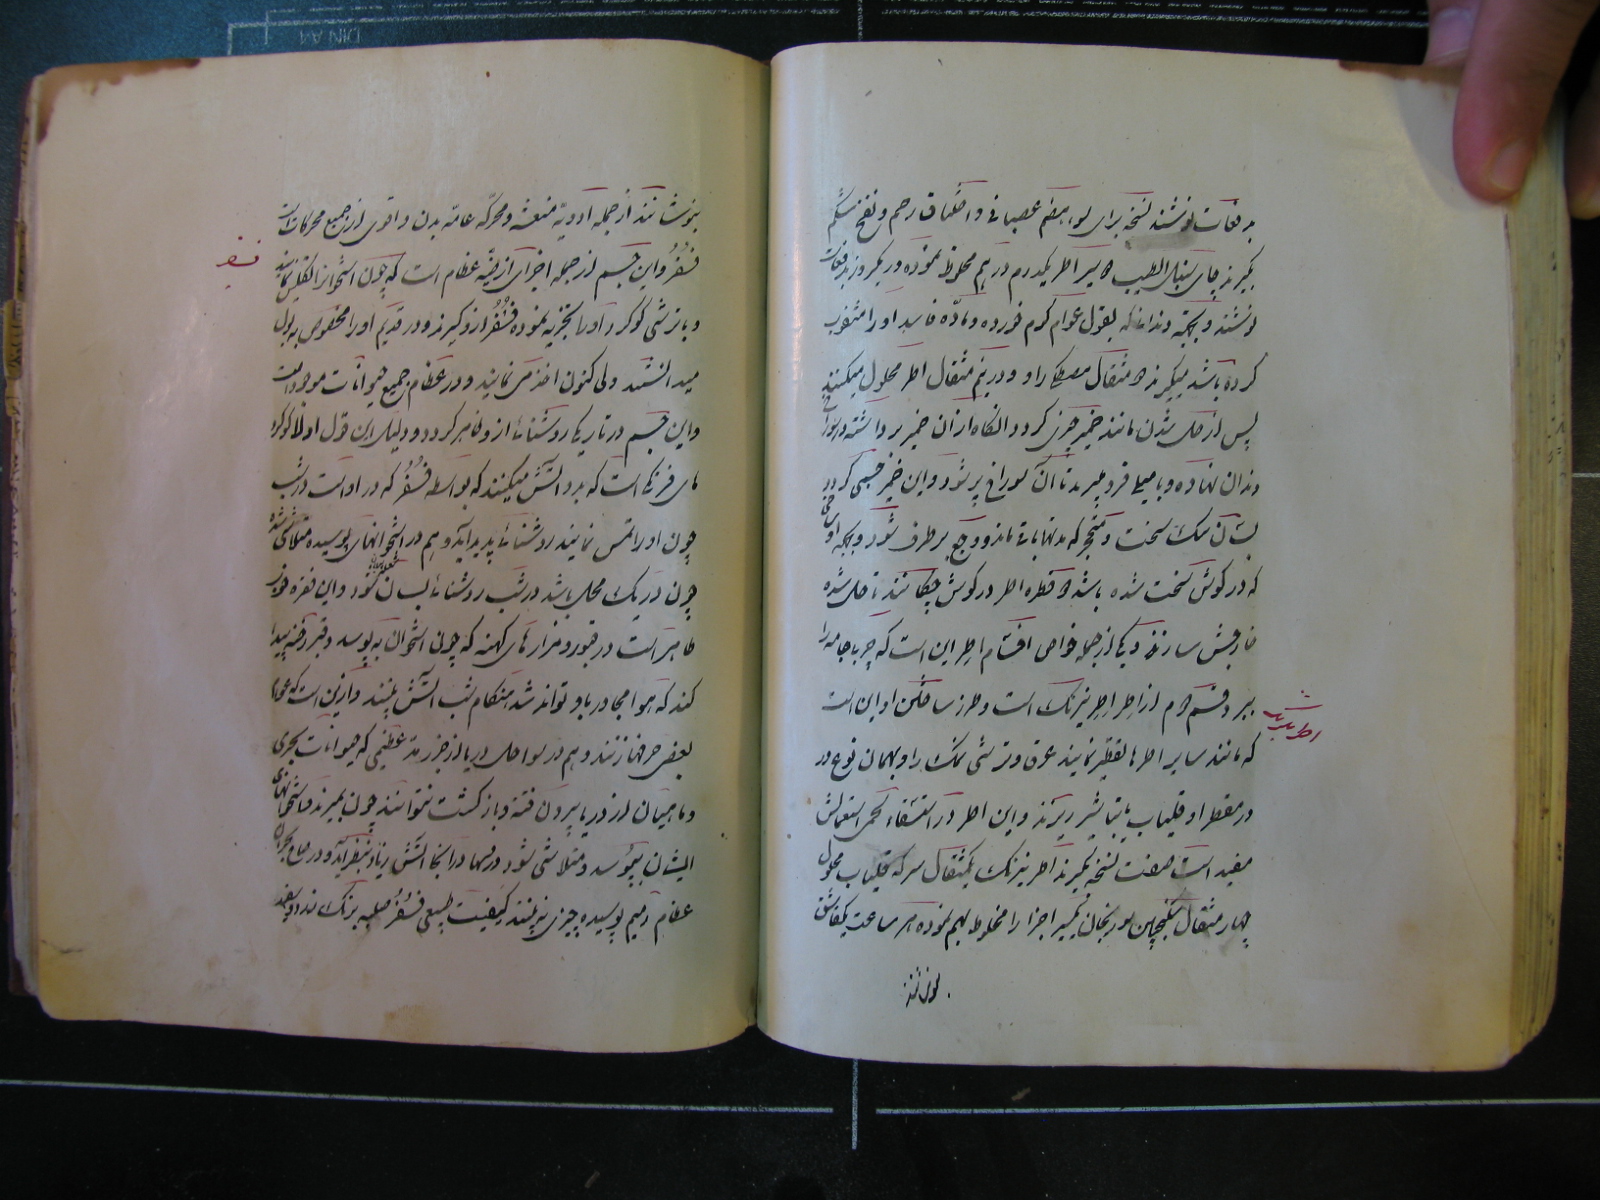 بدفعات نوشند نسخه برای بواسیر عصبانی و اختناق رحم و نفخ شکم
بگیرند چای سنبل الطیب ۵ سیر اطر یکدرم درهم مخلوط نموده در یکروز بدفعات
نوشند و بجهة دندانی که بقول عوام کرم خورده و ماده فاسد او را مثقوب
کرده باشد میگیرند ۵ مثقال مصطکی را و در نیم مثقال اطر محلول میکنند
پس از حل شدن مانند خمیر چیزی گردد آنگاه از آن خمیر برداشته در سوراخ
دندان نهاده و با میلی فرو میبرند تا آن سوراخ پر شود و این خمیر خشبی گردد
بسان سنک سخت و متحجر که مدتها باقی ماند و وجع برطرف شود و بجهة
که در گوش سخت شده باشد ۵ قطره اطر در گوش چکانند تا حل شده
خارجش سازند و یکی از جمله خواص اقسام اطر این است که چربی جامه را
ببرد قسم دوم از اطر اطر نیزنک است و طرز ساختن او این است
که مانند سایر اطرها تقطیر نمایند عرق و ترشی نمک را و بهمان نوع در
در مقطر او قلیاب یا تباشیر ریزند و این اطر در استسقاء لحمی استعمالش
مفید است صفت نسخه بگیرند اطر نیزنک یکمثقال سرکه قلیاب محلول
چهار مثقال سکنجبین سورنجان یکسیر اجزا را مخلوط بهم نموده هر ساعت یکقاشق
نوشند
بنوشانند از جمله ادویهٔ منبعثه و محرکهٔ عامه بدن و اقوی از جمیع محرکات است
فسفر و این جسم از جمله اجزای ارضیهٔ عظام است که چون استخوان را تکلیس نمایند
و با ترشی گوگرد او را تجزیه نموده فسفر از او گیرند و در قدیم او را مخصوص به بول
میدانستند ولی کنون اخذ می نمایند و در عظام جمیع حیوانات موجود است
و این جسم در تاریکی روشنائی از او ظاهر گردد و دلیل این قول اولا گوگرد
های فرنگی است که بدو آتش میکنند که بواسطه فسفر که در او است در شب
چون او را لمس نمایند روشنائی پدید آید و هم در استخوانهای پوسیده متلاشی شده
چون در یک محل باشد در شب روشنائی بسان شود و این فقره خوب
ظاهر است در قبور و مزارهای کهنه که چون استخوان به پوسد و قبر رخنه پیدا
کند که هوا مجاور باو تواند شد هنگام شب آتش بینند و ازین است که عوام
بعضی حرفها زنند و هم در سواحل دریا از جزر و مد عظیمی که حیوانات بحری
و ماهیان از دریا بیرون افتند و بازگشت نتوانند چون بمیرند و استخوانهای
ایشان بپوسد و متلاشی شود در شبها در آنجا آتش زیاد بنظر آید و در
عظام رمیم پوسیده چیزی نه بینند کیفیت طبیعی فسفر صلب بیرنک
فسفر
اطر نیزنک